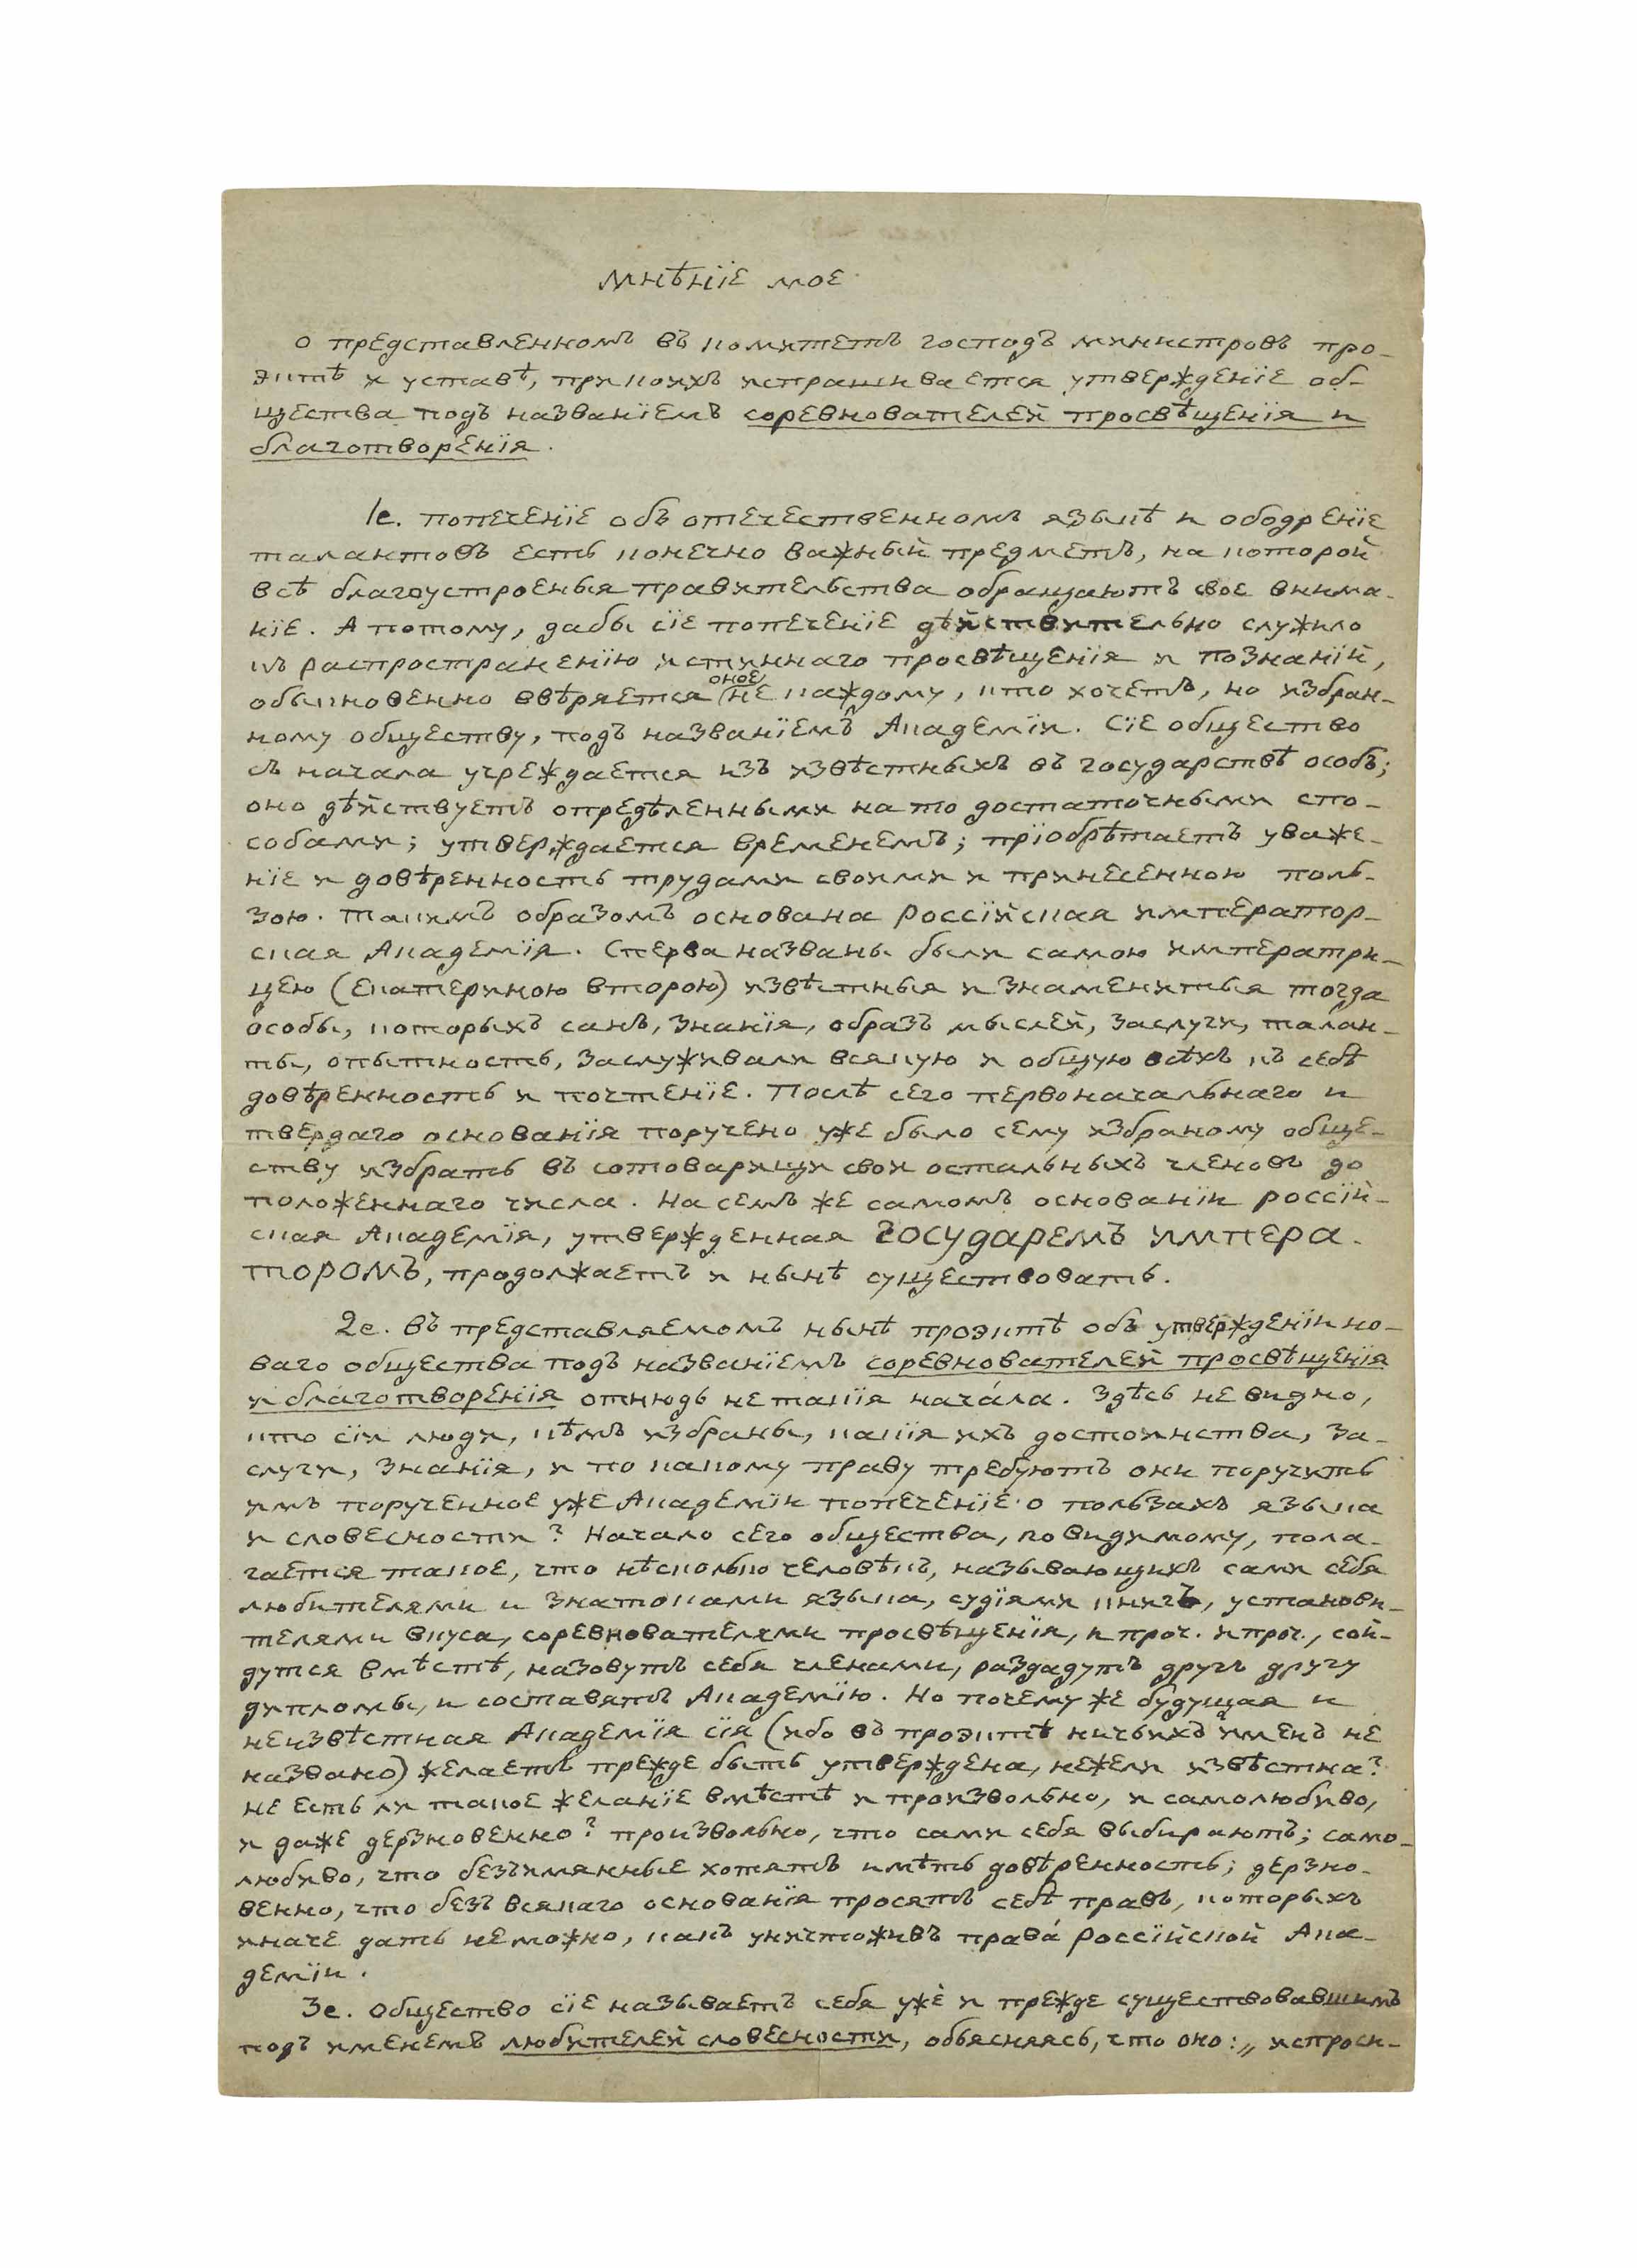 Мнѣнїе мое
о представленномъ въ комитетъ господъ министровъ про-
эктѣ и уставѣ, при коихъ испрашивается утвержденїе об-
щества подъ названїемъ соревнователей просвѣщенїя и
благотворенїя.
1е. Попеченїе объ отечественномъ языкѣ и ободренїе
талантовъ есть конечно важный предметъ, на которой
всѣ благоустроеныя правительства обращаютъ свое внима-
нїе. А потому, дабы сїе попеченїе дѣйствительно служило
къ распространенїю истиннаго просвѣщенїя и познанїй,
обыкновенно ввѣряется оное не каждому, кто хочетъ, но избран-
ному обществу, подъ названїемъ Академїи. Сїе общество
съ начала учреждается изъ извѣстныхъ въ государствѣ особъ;
оно дѣйствуетъ опредѣленными на то достаточными спо-
собами; утверждается временемъ; прїобрѣтаетъ уваже-
нїе и довѣренность трудами своими и принесенною поль-
зою. Такимъ образомъ основана Россїйская император-
ская Академїя. Сперва названы были самою императри-
цею (Екатериною второю) извѣстныя и знаменитыя тогда
особы, которыхъ санъ, знанїя, образъ мыслей, заслуги, талан-
ты, опытность, заслуживали всякую и общую всѣхъ къ себѣ
довѣренность и почтенїе. Послѣ сего первоначальнаго и
твердаго основанїя поручено уже было сему избраному обще-
ству избрать въ сотоварищи свои остальныхъ членовъ до
положеннаго числа. На семъ же самомъ основанїи россїй-
ская Академїя, утвержденная Государемъ импера-
торомъ, продолжаетъ и нынѣ существовать.
2е. Въ представляемомъ нынѣ проэктѣ объ утвержденїи но-
ваго общества подъ названїемъ соревнователей просвѣщенїя
и благотворенїя отнюдь не такїя начáла. Здѣсь не видно,
кто сїи люди, кѣмъ избраны, какїя ихъ достоинства, за-
слуги, знанїя, и по какому праву требуютъ они поручить
имъ порученное уже Академїи попеченїе о пользахъ языка
и словесности? Начало сего общества, по видимому, пола-
гается такое, что нѣсколько человѣкъ, называющихъ сами себя
любителями и знатоками языка, судїями книгъ, установи-
телями вкуса, соревнователями просвѣщенїя, и проч. и проч., сой-
дутся вмѣстѣ, назовутъ себя членами, раздадутъ другъ другу
дипломы, и составятъ Академїю. Но почему же будущая и
неизвѣстная Академїя сїя (ибо въ проэктѣ ничьихъ именъ не
названо) желаетъ прежде быть утверждена, нежели извѣстна?
не есть ли такое желанїе вмѣстѣ и произвольно, и самолюбиво,
и даже дерзновенно? произвольно, что сами себя выбираютъ; само-
любиво, что безъимянные хотятъ имѣть довѣренность; дерзно-
венно, что безъ всякаго основанїя просятъ себѣ правъ, которыхъ
иначе дать неможно, какъ уничтоживъ правá Россїйской Ака-
демїи.
3е. Общество сїе называетъ себя уже и прежде существовавшимъ
подъ именемъ любителей словесности, объясняясь, что оно: „ испроси-